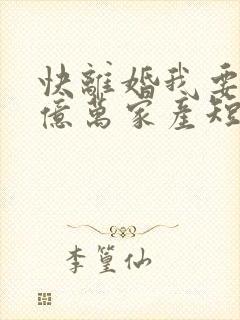 快離婚我要
億萬家產短
李篁仙